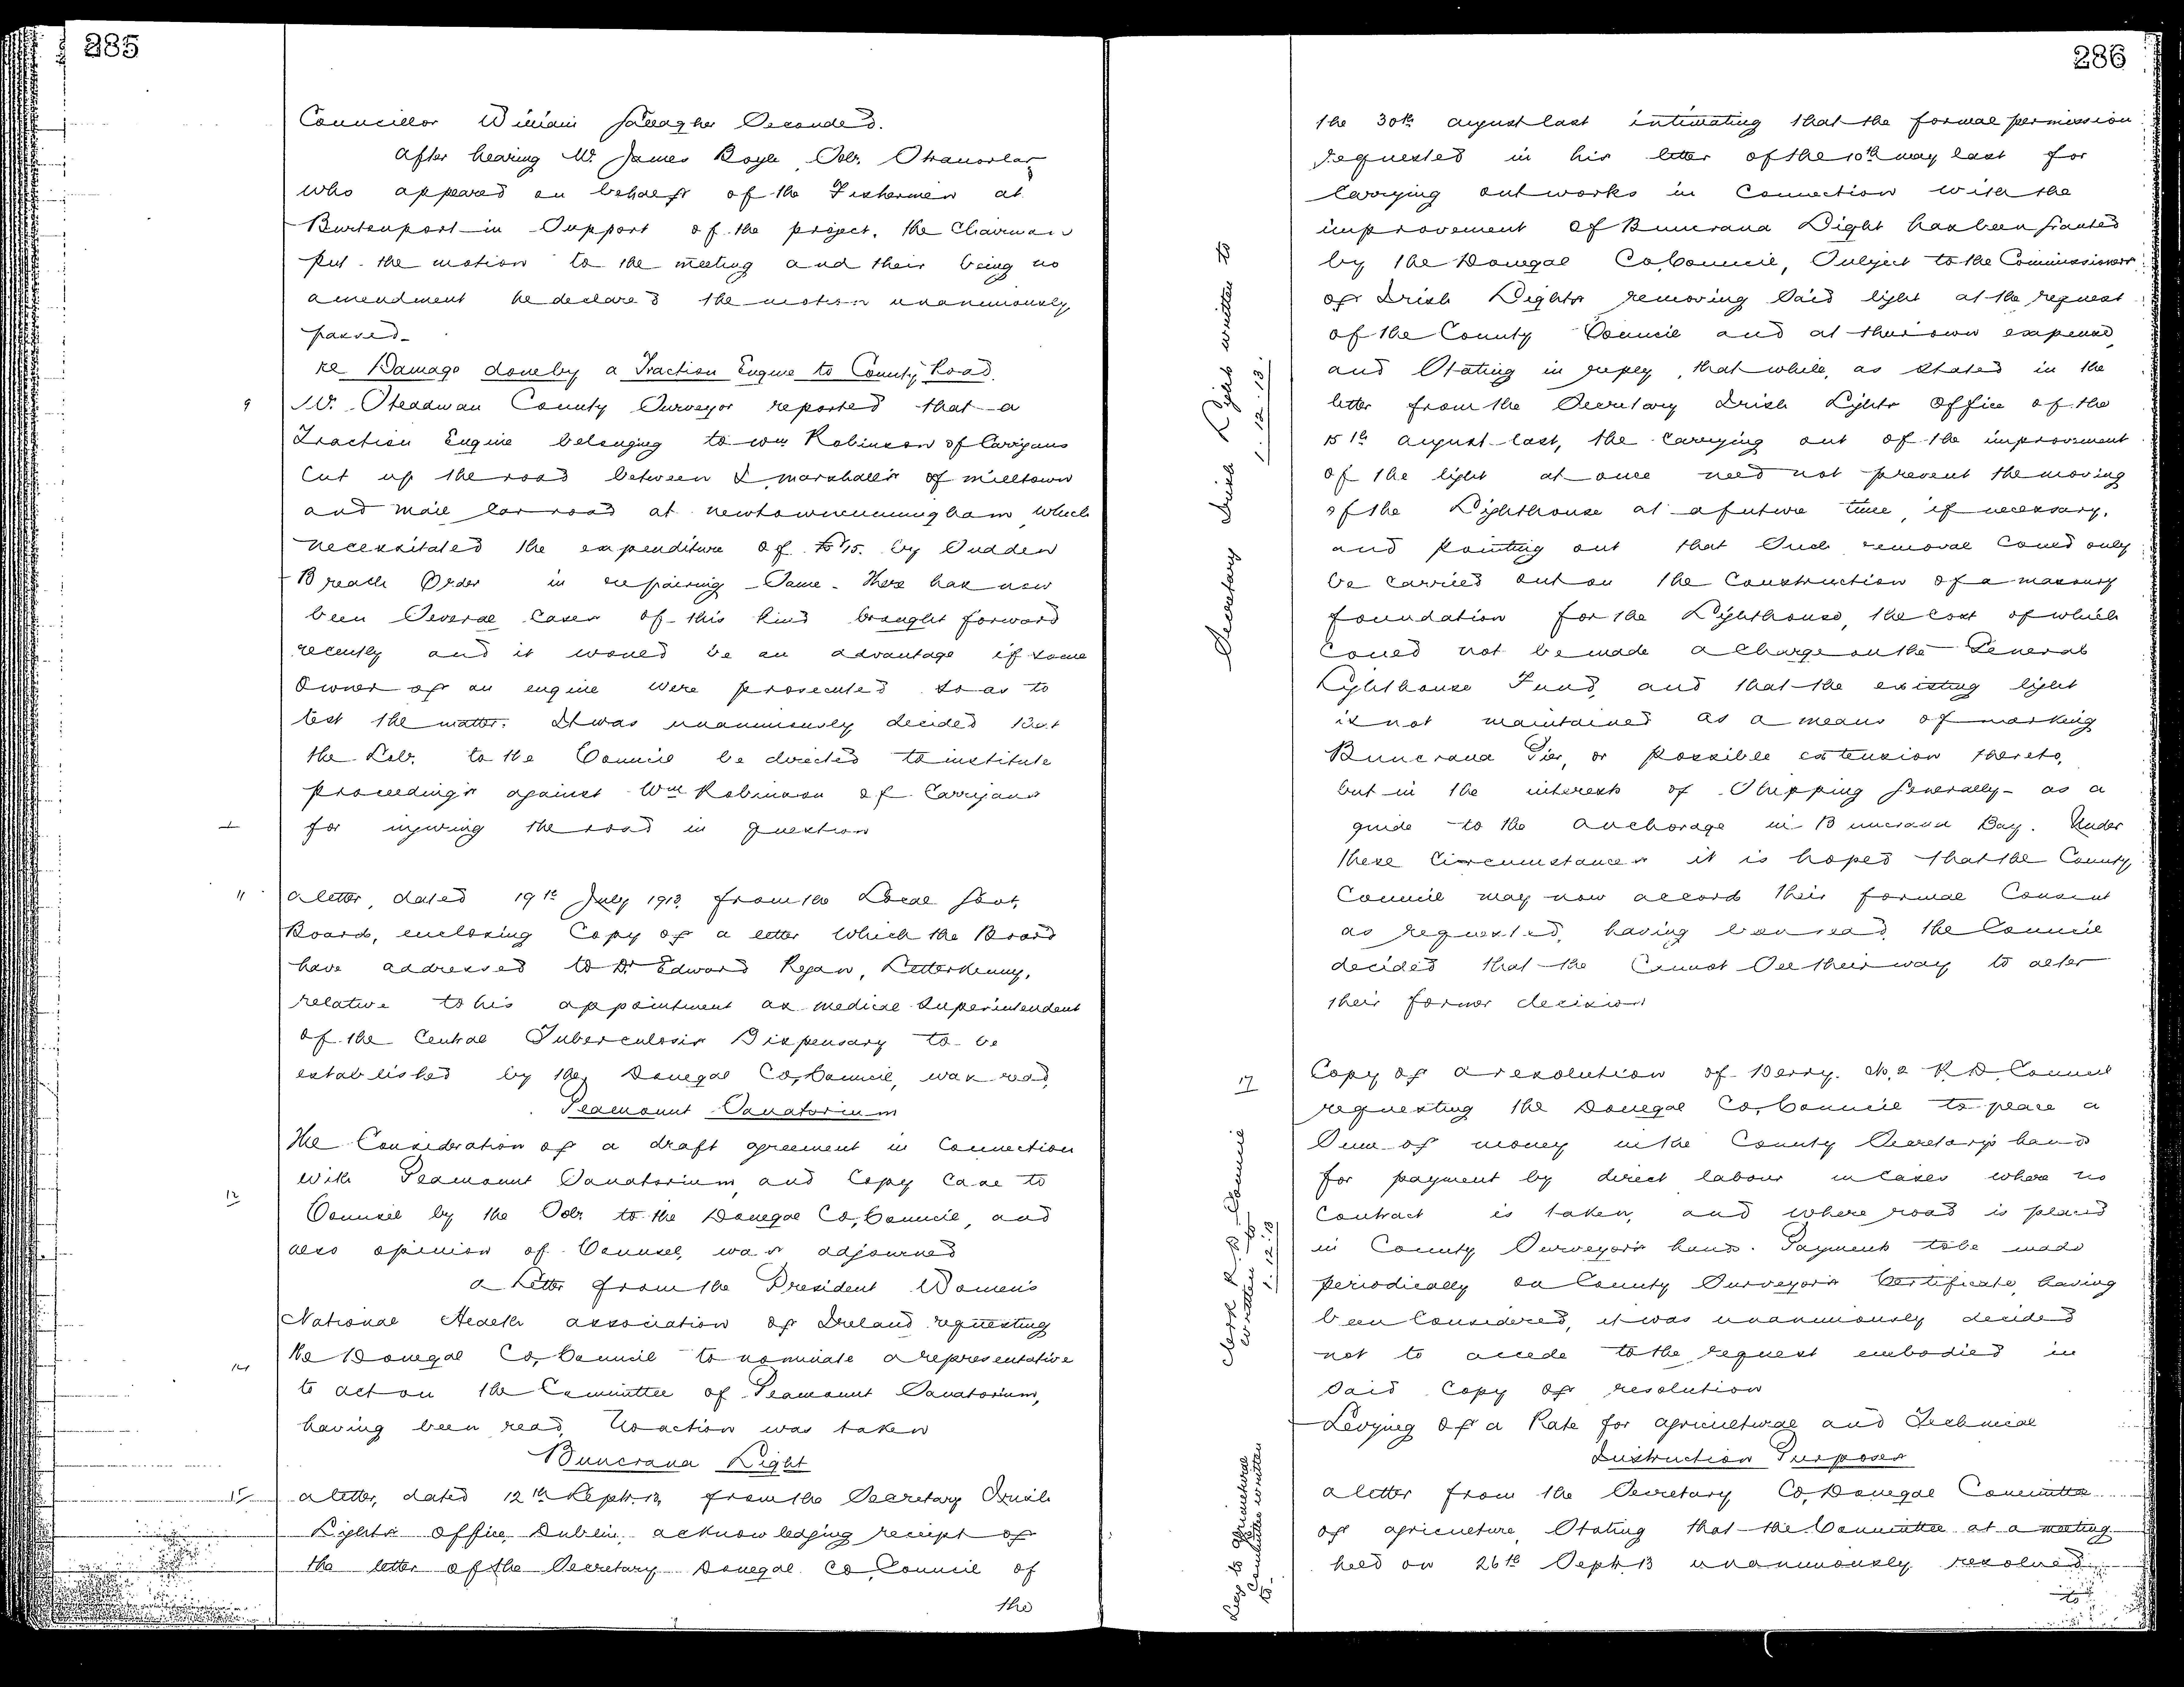 285
Councillor William Gallagher Seconded.
After hearing Mr. James Boyle Solr. Stranorlar
who appeared on behalf of the Fishermen at
Burtonport in Support of the project, the Chairman
put the motion to the meeting and their being no
amendment he declared the motion unanimously
passed.
re Damage done by a Traction Engine to County Road.
9 Mr. Steadman County Surveyor reported that a
Traction Engine belonging to Wm Robinson of Carrigans
cut up the road between J. Marshall's of Milltown
and mail car road at Newtowncunningham which
necessitated the expenditure of £15. by Sudden
Breach Order in repairing Same. There has now
been Several Cases of this kind brought forward
recently and it would be an advantage if some
Owner of an engine were prosecuted so as to
test the matter. It was unanimously decided that
the Solr. to the Council be directed to institute
proceeding's against Wm Robinson of Carrigans
for injuring the road in question
11 A letter, dated 19th July 1913 from the Local Govt.
Board, enclosing Copy of a letter which the Board
have addressed to Dr Edward Regan, Letterkenny,
relative to his appointment as Medical Superintendent
of the Central Tuberculosis Dispensary to be
established by the Donegal Co, Council, was read
Peamount Sanatorium
The Consideration of a draft agreement in Connection
with Peamount Sanatorium, and Copy Case to
12 Counsel by the Solr. to the Donegal Co, Council, and
also opinion of Counsel, was adjourned
A Letter from the President Women's
National Health association of Ireland requesting
14 the Donegal Co, Council to nominate a representative
to act on the Committee of Peamount Sanatorium,
having been read, No action was taken
Buncrana Light
15 A letter, dated 12th Sept. 13, from the Secretary Irish
Lights Office, Dublin, acknowledging receipt of
the letter of the Secretary Donegal Co Council of
the
286
the 30th August last intimating that the formal permission
requested in his letter of the 10th May last for
carrying out works in Connection with the
improvement of Buncrana Light has been granted
by the Donegal Co. Council, Subject to the Commissioners
of Irish Lights removing Said light at the request
of the County Council and at their own expense,
and Stating in reply, that while, as stated in the
letter from the Secretary Irish Lights Office of the
15th August last, the Carrying out of the improvement
of the light at once need not prevent the moving
of the Lighthouse at a future time, if necessary,
and pointing out that Such removal Could only
be carried out on the Construction of a masonry
foundation for the Lighthouse, the cost of which
Could not be made a Charge on the General
Lighthouse Fund, and that the existing light
is not maintained as a means of marking
Buncrana Pier, or possible extension thereto,
but in the interests of Shipping Generally - as a
guide to the Anchorage in Buncrana Bay. Under
these Circumstances it is hoped that the County
Council may now accord their formal Consent
as requested, having been read, the Council
decided that the Cannot See their way to alter
their former decision
Secretary Irish Lights written to
1. 12. 13.
17 Copy of a resolution of Derry. No. 2 R.D. Council
requesting the Donegal Co, Council to place a
Sum of money in the County Secretary's hand
for payment by direct labour in Cases where no
Contract is taken, and where road is placed
in County Surveyor's hands. Payments to be made
periodically on County Surveyor's Certificate, having
been Considered, it was unanimously decided
not to accede to the request embodied in
Said Copy of resolution
Clerk R. D. Council
written to
1. 12. 13
Levying of a Rate for Agricultural and Technical
Instruction Purposes
A letter from the Secretary Co, Donegal Committee
of Agriculture, Stating that the Committee at a meeting
held on 26th Sept. 13 unanimously resolved
to
Secy to Agricultural
Committee written
to.